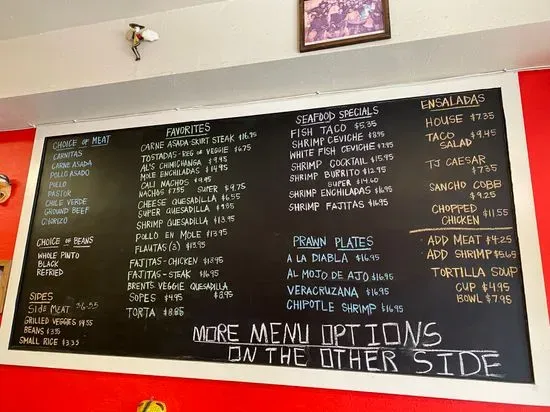 CHOICE OF MEAT
CARNITAS
CARNE ASADA
POLLO ASADO
POLLO
PASTOR
CHILE VERDE
GROUND BEEF
CHORIZO
CHOICE OF BEANS
WHOLE PINTO
BLACK
REFRIED
SIDES
SIDE MEAT $6.55
GRILLED VEGGIES
BEANS
SMALL RICE $3.35
FAVORITES
CARNE ASADA-SKIRT STEAK $16.95
TOSTADAS-REG OR VEGGIE $6.75
AL'S CHIMICHANGA $9.95
MOLE ENCHILADAS $14.95
CALI NACHOS $9.95
NACHOS $7.95 SUPER $9.75
CHEESE QUESADILLA $6.55
SUPER QUESADILLA
SHRIMP QUESADILLA $13.95
POLLO EN MOLE $13.95
FLAUTAS (3) $13.95
FAJITAS-CHICKEN $13.95
FAJITAS-STEAK $16.95
BRENTS VEGGIE QUESADILLA
$8.95
SOPES $4.95
TORTA $8.85
SEAFOOD SPECIALS
FISH TACO $5.35
SHRIMP CEVICHE
WHITE FISH CEVICHE
SHRIMP COCKTAIL $15.95
SHRIMP BURRITO $12.95
SUPER $14.60
SHRIMP ENCHILADAS $16.95
SHRIMP FAJITAS $16.95
PRAWN PLATES
A LA DIABLA $16.95
AL MOJO DE AJO $16.95
VERACRUZANA $16.95
CHIPOTLE SHRIMP $16.95
ENSALADAS
HOUSE $7.35
TACO $9.45
SALAD
TJ CAESAR
$7.35
SANCHO COBB
$9.25
CHOPPED
CHICKEN $11.55
ADD MEAT $4.25
ADD SHRIMP $5.65
TORTILLA SOUP
CUP $4.95
BOWL $7.95
MORE MENU OPTIONS
ON THE OTHER SIDE